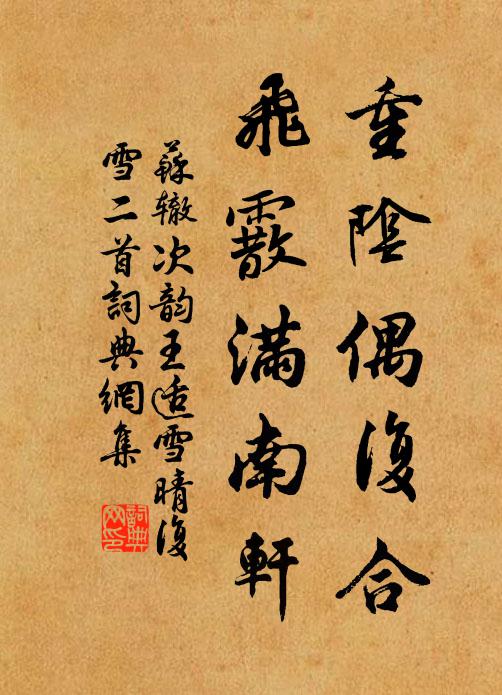 重陰偶復合
飛霰滿南軒
蘇辙次韵王适雪晴復
雪二首詞典網集
詞典网印